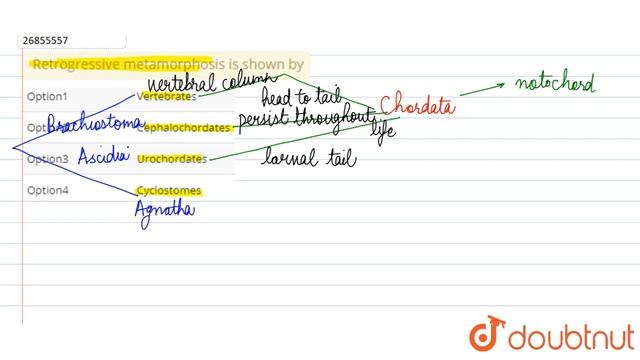 26855557
Retrogressive metamorphosis is shown by
vertebral column
notochord
Option1 Vertebrates
head to tail
Chordata
Brachiostoma Cephalochordates persist throughout
life
Option3 Ascidia Urochordates larval tail
Option4 Cyclostomes
Agnatha
doubtnut